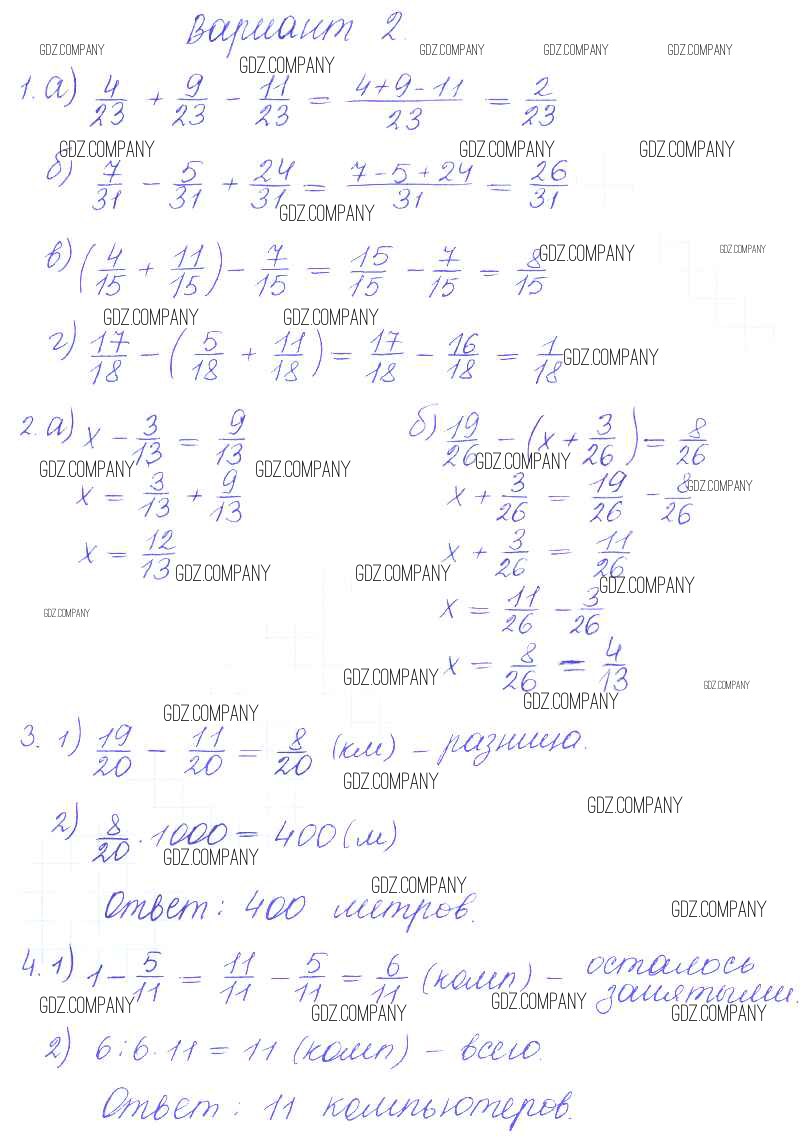 Вариант 2.
GDZ.COMPANY GDZ.COMPANY GDZ.COMPANY GDZ.COMPANY GDZ.COMPANY
1. а) 4/23 + 9/23 - 11/23 = (4+9-11)/23 = 2/23
GDZ.COMPANY GDZ.COMPANY GDZ.COMPANY
б) 7/31 - 5/31 + 24/31 = (7-5+24)/31 = 26/31
GDZ.COMPANY
в) (4/15 + 11/15) - 7/15 = 15/15 - 7/15 = 8/15
GDZ.COMPANY GDZ.COMPANY
GDZ.COMPANY GDZ.COMPANY
г) 17/18 - (5/18 + 11/18) = 17/18 - 16/18 = 1/18
GDZ.COMPANY
2. а) x - 3/13 = 9/13
GDZ.COMPANY GDZ.COMPANY
x = 3/13 + 9/13
x = 12/13
GDZ.COMPANY GDZ.COMPANY
GDZ.COMPANY
б) 19/26 - (x + 3/26) = 8/26
GDZ.COMPANY
x + 3/26 = 19/26 - 8/26
GDZ.COMPANY
x + 3/26 = 11/26
GDZ.COMPANY
x = 11/26 - 3/26
x = 8/26 = 4/13
GDZ.COMPANY GDZ.COMPANY
GDZ.COMPANY GDZ.COMPANY
3. 1) 19/20 - 11/20 = 8/20 (км) - разница.
GDZ.COMPANY GDZ.COMPANY
2) 8/20 · 1000 = 400 (м)
GDZ.COMPANY
GDZ.COMPANY GDZ.COMPANY
Ответ: 400 метров.
4. 1) 1 - 5/11 = 11/11 - 5/11 = 6/11 (комп) - осталось
занятыми.
GDZ.COMPANY GDZ.COMPANY GDZ.COMPANY GDZ.COMPANY
2) 6:6·11 = 11 (комп) - всего.
Ответ: 11 компьютеров.